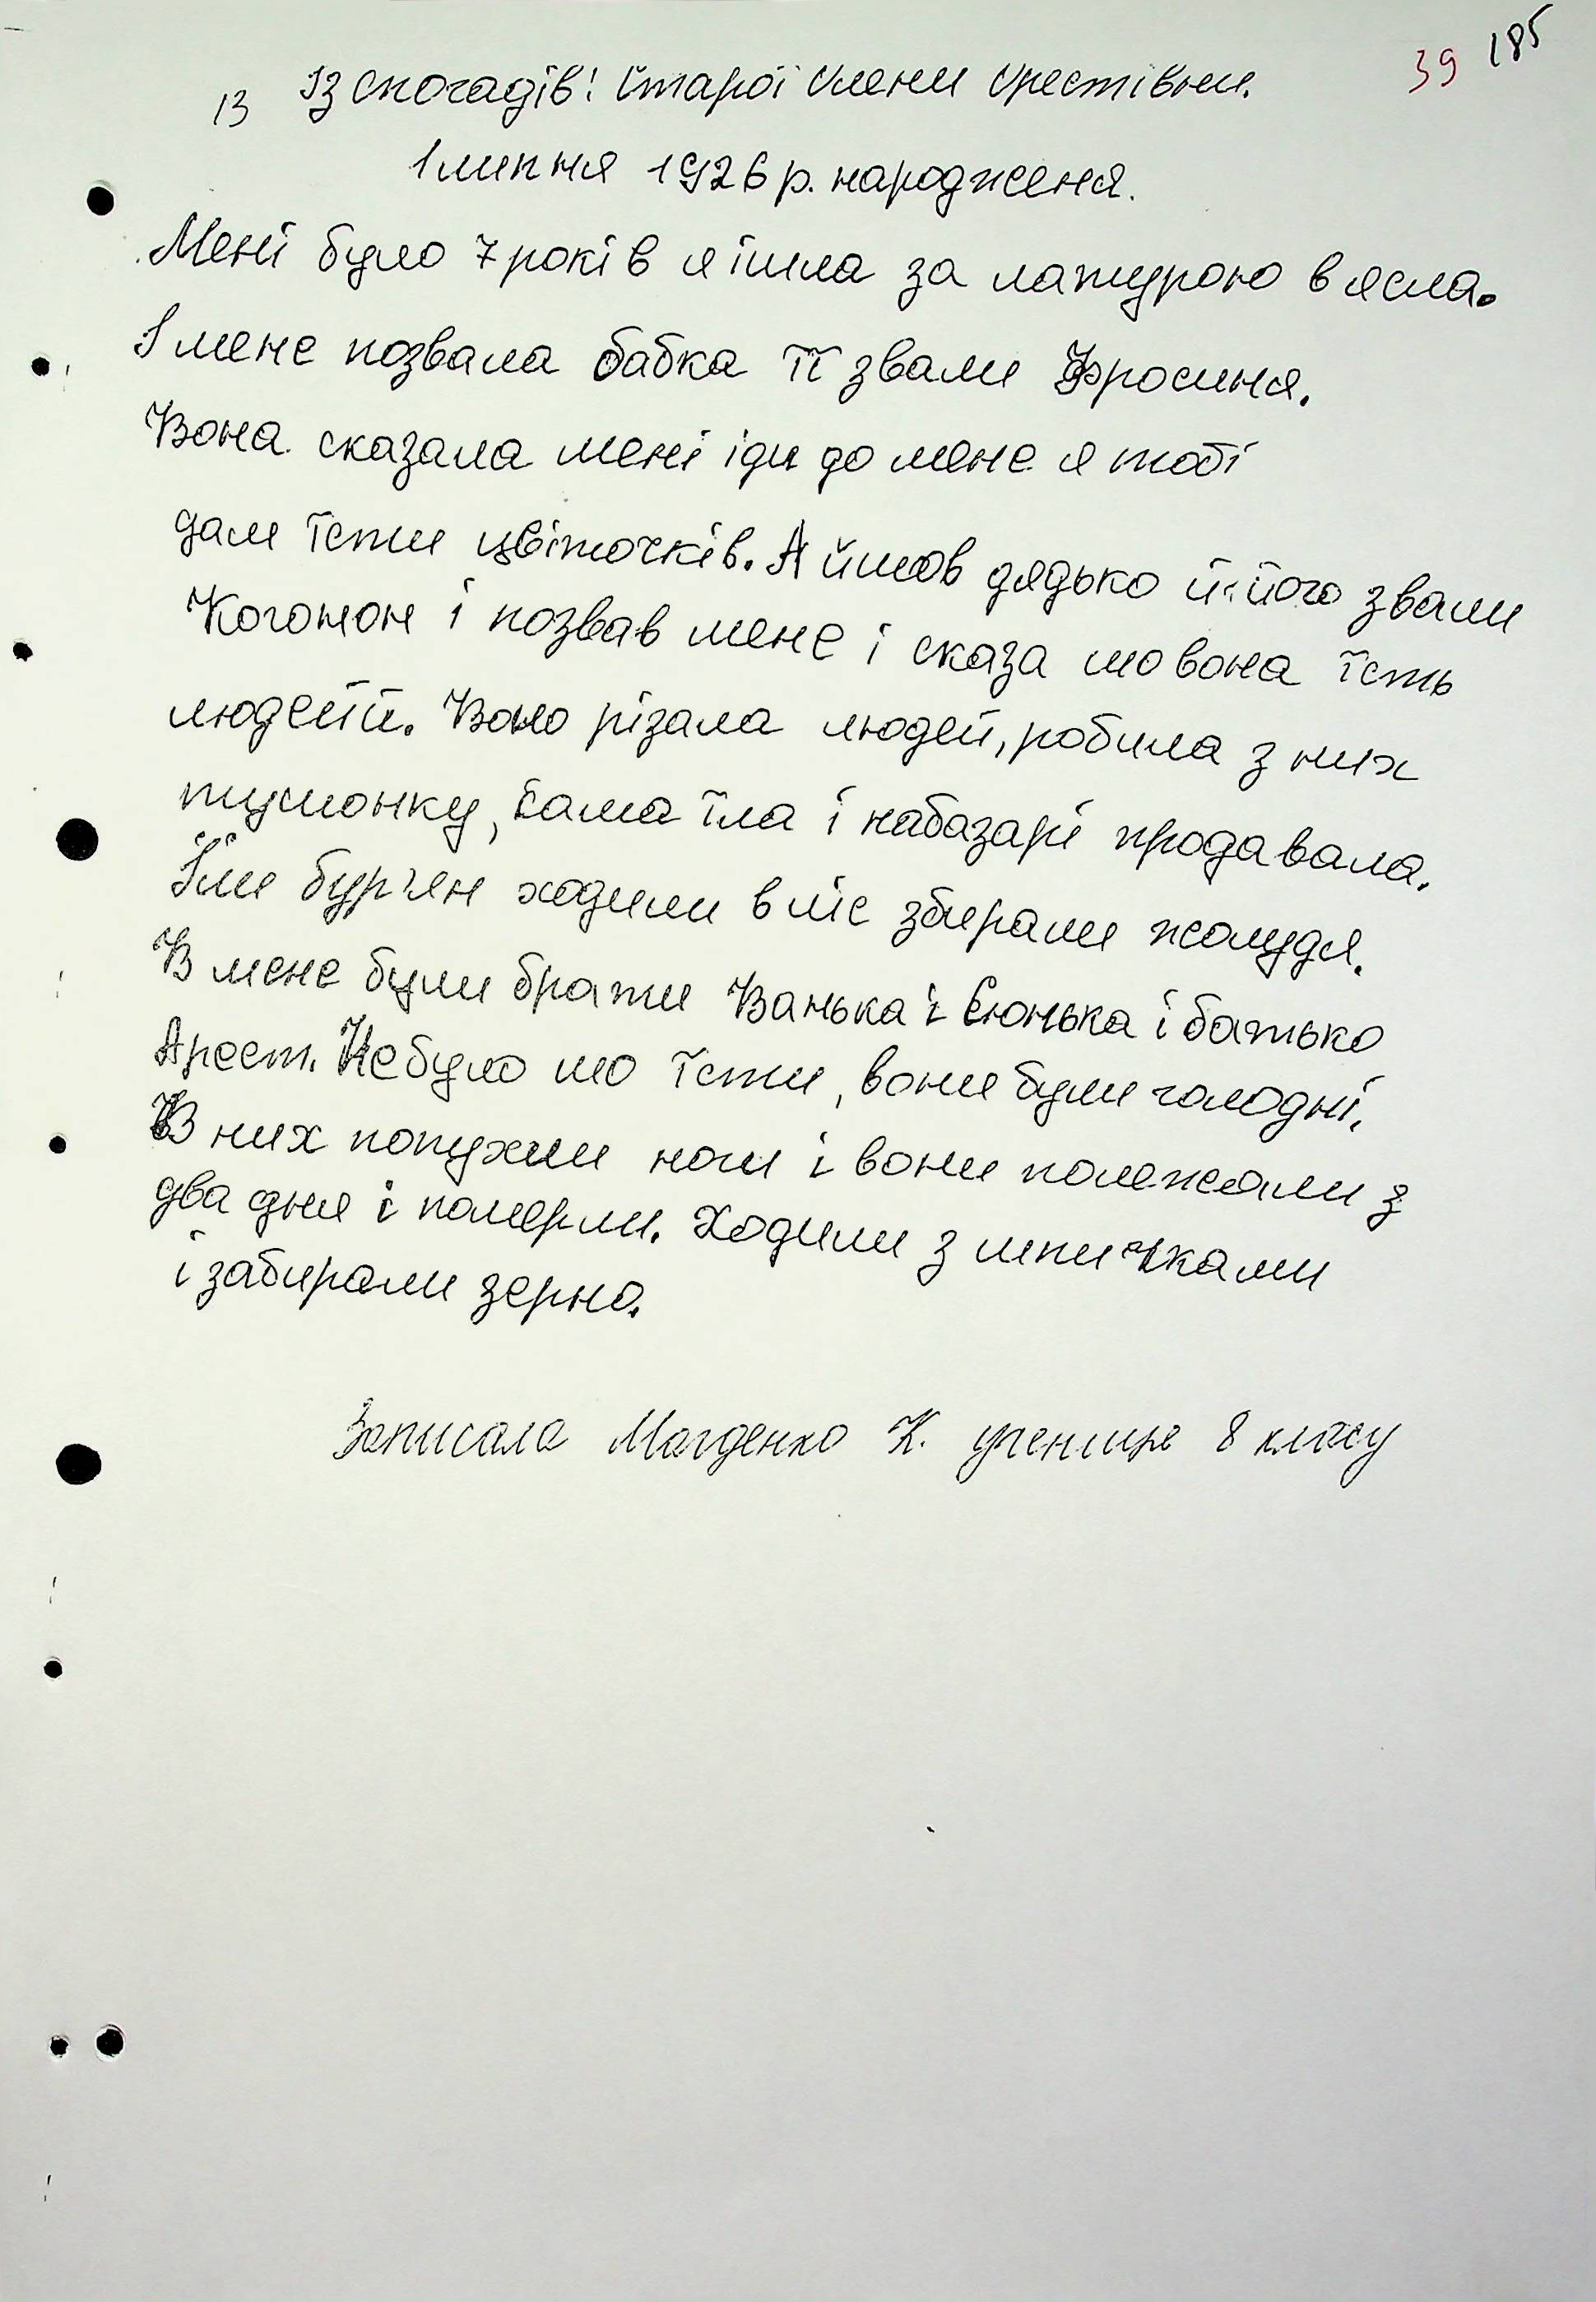 39 185
13 Із спогадів: Старої Олени Орестівни.
1 липня 1926 р. народженя.
Мені було 7 років я ішла за латурою в ясла.
І мене позвала бабка її звали Фросиня.
Вона сказала мені іди до мене я тобі
дам їсти цвіточків. А йшов дядько й його звали
Когонон і позвав мене і сказа шо вона їсть
людейй. Воно різала людей, робила з них
тушонку, сама їла і набазарі продавала.
Їли бур'ян ходили в ліс збирали жолудя.
В мене були брати Ванька і Сюнька і батько
Арест. Небуло шо їсти, вони були голодні.
В них попухли ноги і вони полежали з
два дня і померли. Ходили з шпичками
і забирали зерно.
Записала Магденко К. учениця 8 класу